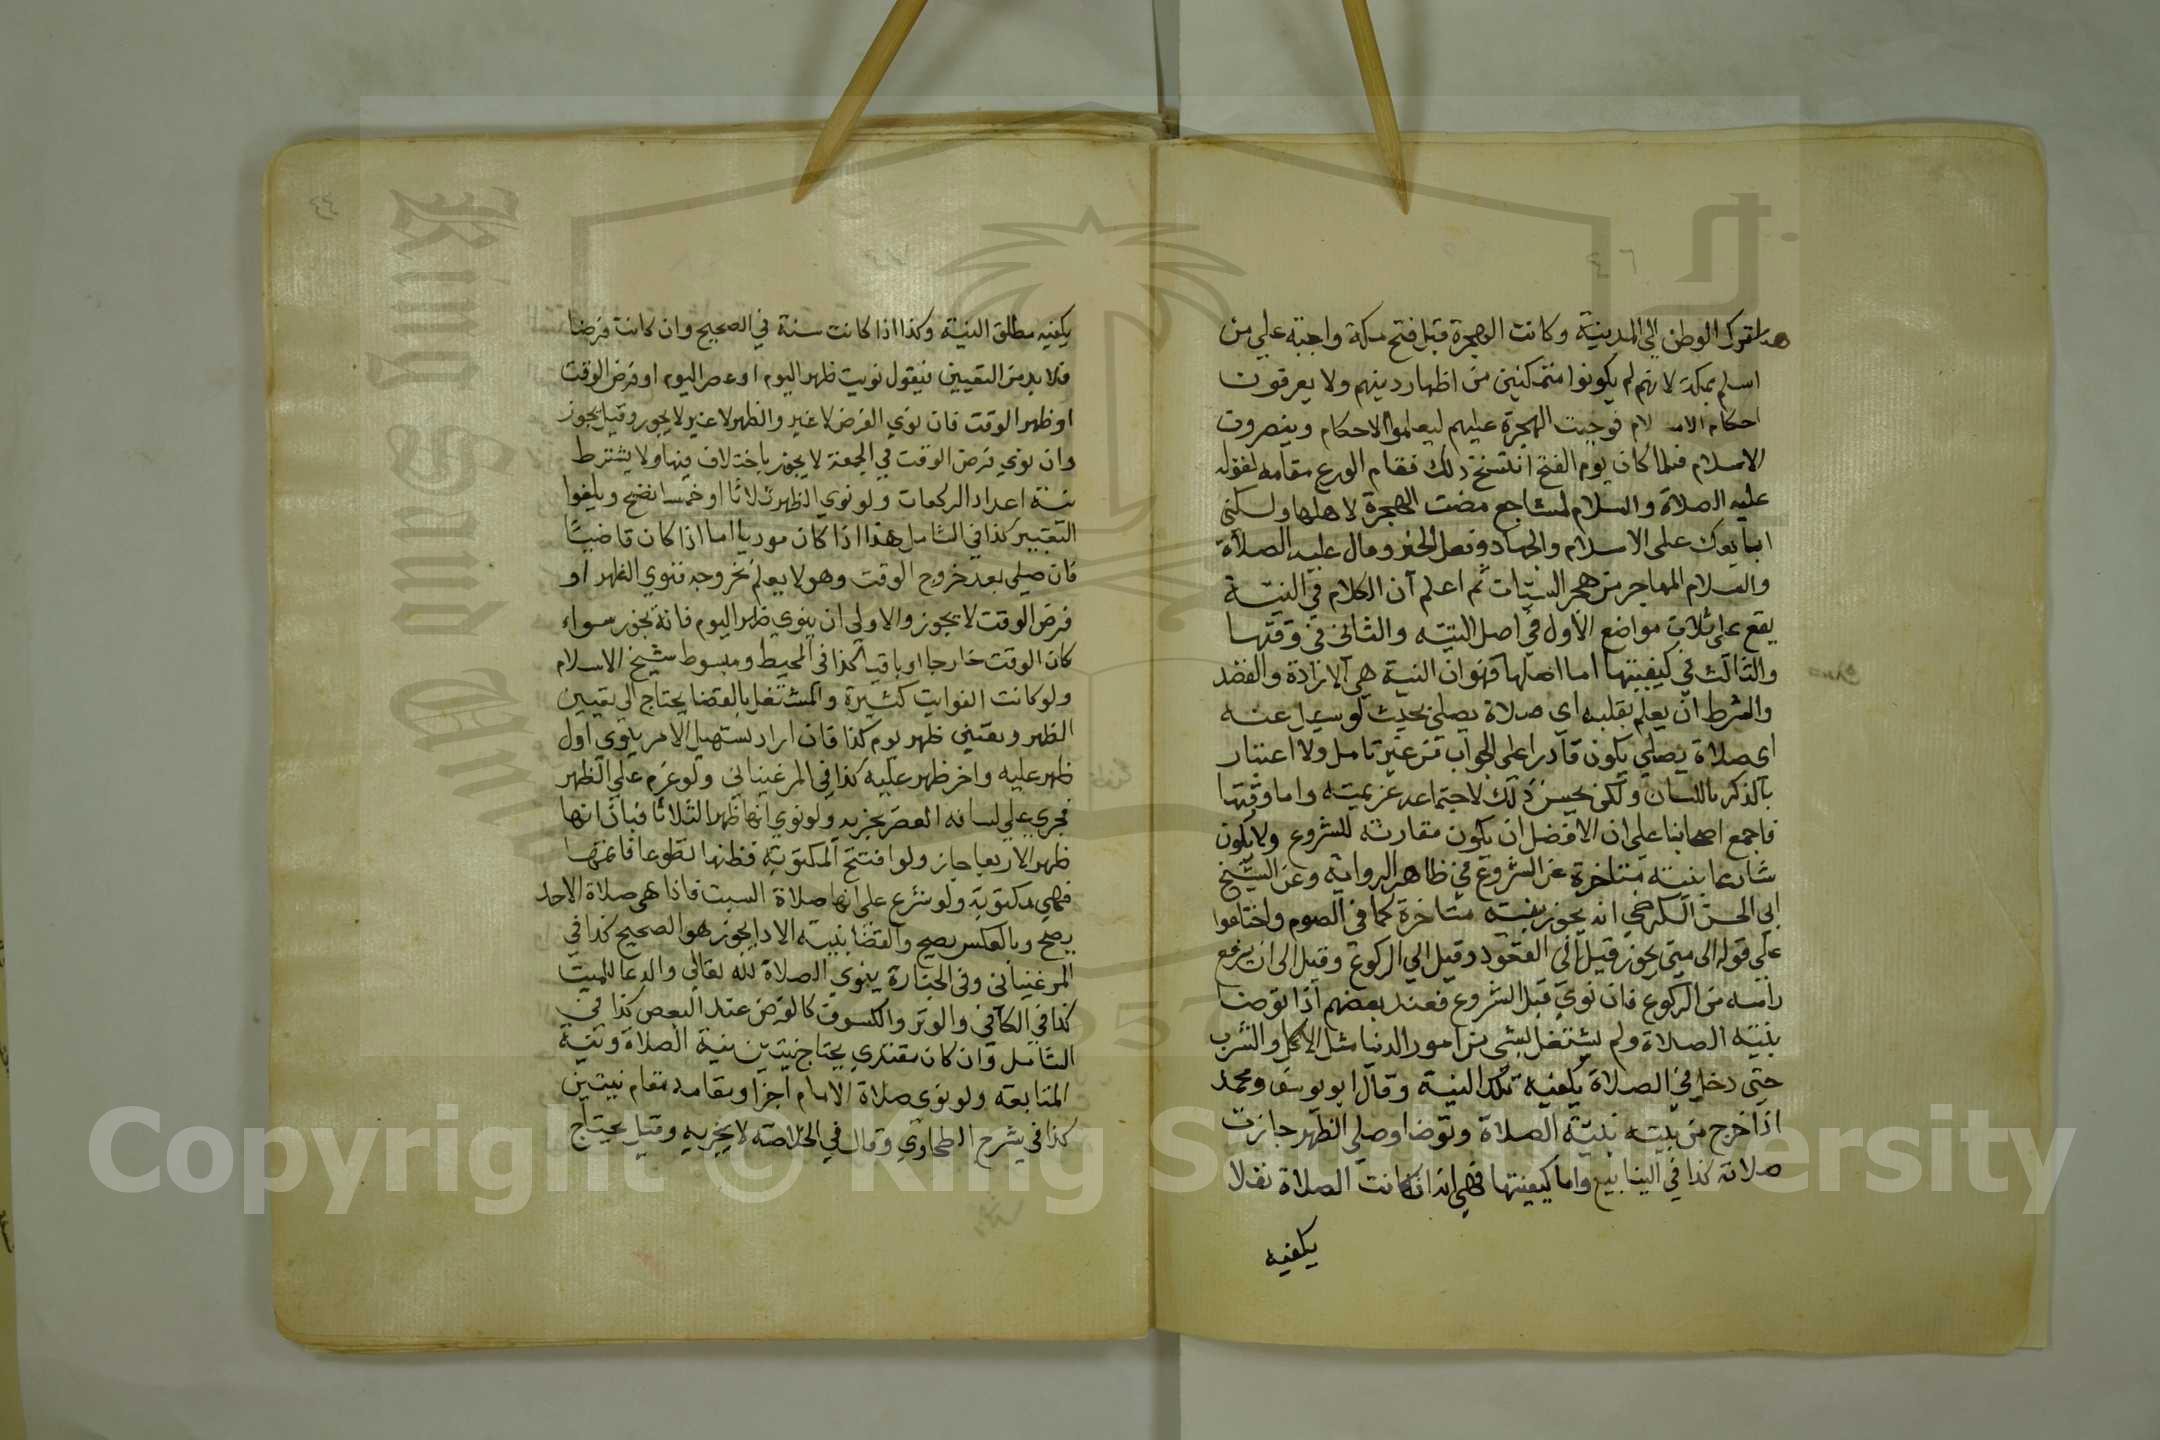 هو ترك الوطن الي المدينة وكانت الهجرة قبل فتح مكة واجبة علي من
اسلم بمكة لانهم لم يكونوا متمكنين من اظهار دينهم ولا يعرفون
احكام الاسلام فوجبت الهجرة عليهم ليعلموا الاحكام وينصرون
الاسلام فلما كان يوم الفتح انتسخ ذلك فقام الورع مقامه لقوله
عليه الصلاة والسلام لمشاجع مضت الهجرة لاهلها ولكني
ابايعوك على الاسلام والجهاد وفعل الخير وقال عليه الصلاة
والسلام المهاجر من هجر السيئات ثم اعلم ان الكلام في النية
يقع على ثلاث مواضع الأول في اصل النيته والثانى في وقتها
والثالث في كيفيتها اما اصلها فهو ان النية هي الارادة والقصد
والشرط ان يعلم بقلبه اي صلاة يصلي بحيث لو سيل عنه
اي صلاة يصلي يكون قادرا على الجواب من غير تامل ولا اعتبار
بالذكر باللسان ولكن يحسن ذلك لاجتماع عزيمته واما وقتها
فاجمع اصحابنا على ان الافضل ان يكون مقارنته للشروع ولا يكون
شارعا بنيته متاخرة عن الشروع في ظاهر الرواية وعن الشيخ
ابي الحسن الكرخي انه يجوز بنيته متاخرة كما في الصوم واختلفوا
على قوله الى متى يجوز قيل الي القعود وقيل الي الركوع وقيل الى ان يرفع
راسه من الركوع فان نوي قبل الشروع فعند بعضهم اذا توضا
بنيته الصلاة ولم يشتغل بشي من امور الدنيا مثل الاكل والشرب
حتى دخل في الصلاة يكفيه تلك النية وقال ابو يوسف ومحمد
اذا خرج من بيته بنيته الصلاة وتوضا وصلي الظهر جازت
صلاته كذا في الينابيع واما كيفيتها فهي اذا كانت الصلاة نفلا
يكفيه
يكفيه مطلق النية وكذا اذا كانت سنة في الصحيح وان كانت فرضا
فلا بد من التعيين فيقول نويت ظهر اليوم او عصر اليوم او فرض الوقت
او ظهر الوقت فان نوي الفرض لا غير والظهر لا غير لا يجوز وقيل يجوز
وان نوي فرض الوقت في الجمعة لا يجوز باختلاف فيها ولا يشترط
نيته اعداد الركعات ولو نوي الظهر ثلاثا او خمسا يصح ويلغوا
التعيين كذا في الشامل هذا اذا كان موديا اما اذا كان قاضيا
فان صلي بعد خروج الوقت وهو لا يعلم بخروجه فنوي الظهر او
فرض الوقت لا يجوز والاولى ان ينوي ظهر اليوم فانه يجوز سواء
كان الوقت خارجا او باقيا كذا في المحيط ومبسوط شيخ الاسلام
ولو كانت الفوايت كثيرة والمشتغل بالقضا يحتاج الي تعيين
الظهر وتعين ظهر يوم كذا فان اراد تستهيل الامر ينوي اول
ظهر عليه واخر ظهر عليه كذا في المرغيناني ولو عزم علي الظهر
فجري علي لسانه العصر يجزيه ولو نوي انها ظهر الثلاثا فبان انها
ظهر الاربعا جاز ولو افتتح المكتوبة فظنها تطوعا فاتمها
فهي مكتوبة ولو شرع على انها صلاة السبت فاذا هي صلاة الاحد
يصح وبالعكس يصح والقضا بنيته الادا يجوز هو الصحيح كذا في
المرغيناني وفي الجنازة ينوي الصلاة لله تعالي والدعا للميت
كذا في الكافي والوتر والكسوف كالفرض عند البعض كذا في
الشامل وان كان مقتدي يحتاج نيتين نية الصلاة ونية
المتابعة ولو نوى صلاة الامام اجزاه وبقامه مقام نيتين
كذا في شرح الطحاوي وقال في الخلاصه لا يجزيه وقيل يحتاج
Copyright © King Saud University
King Saud University
1957